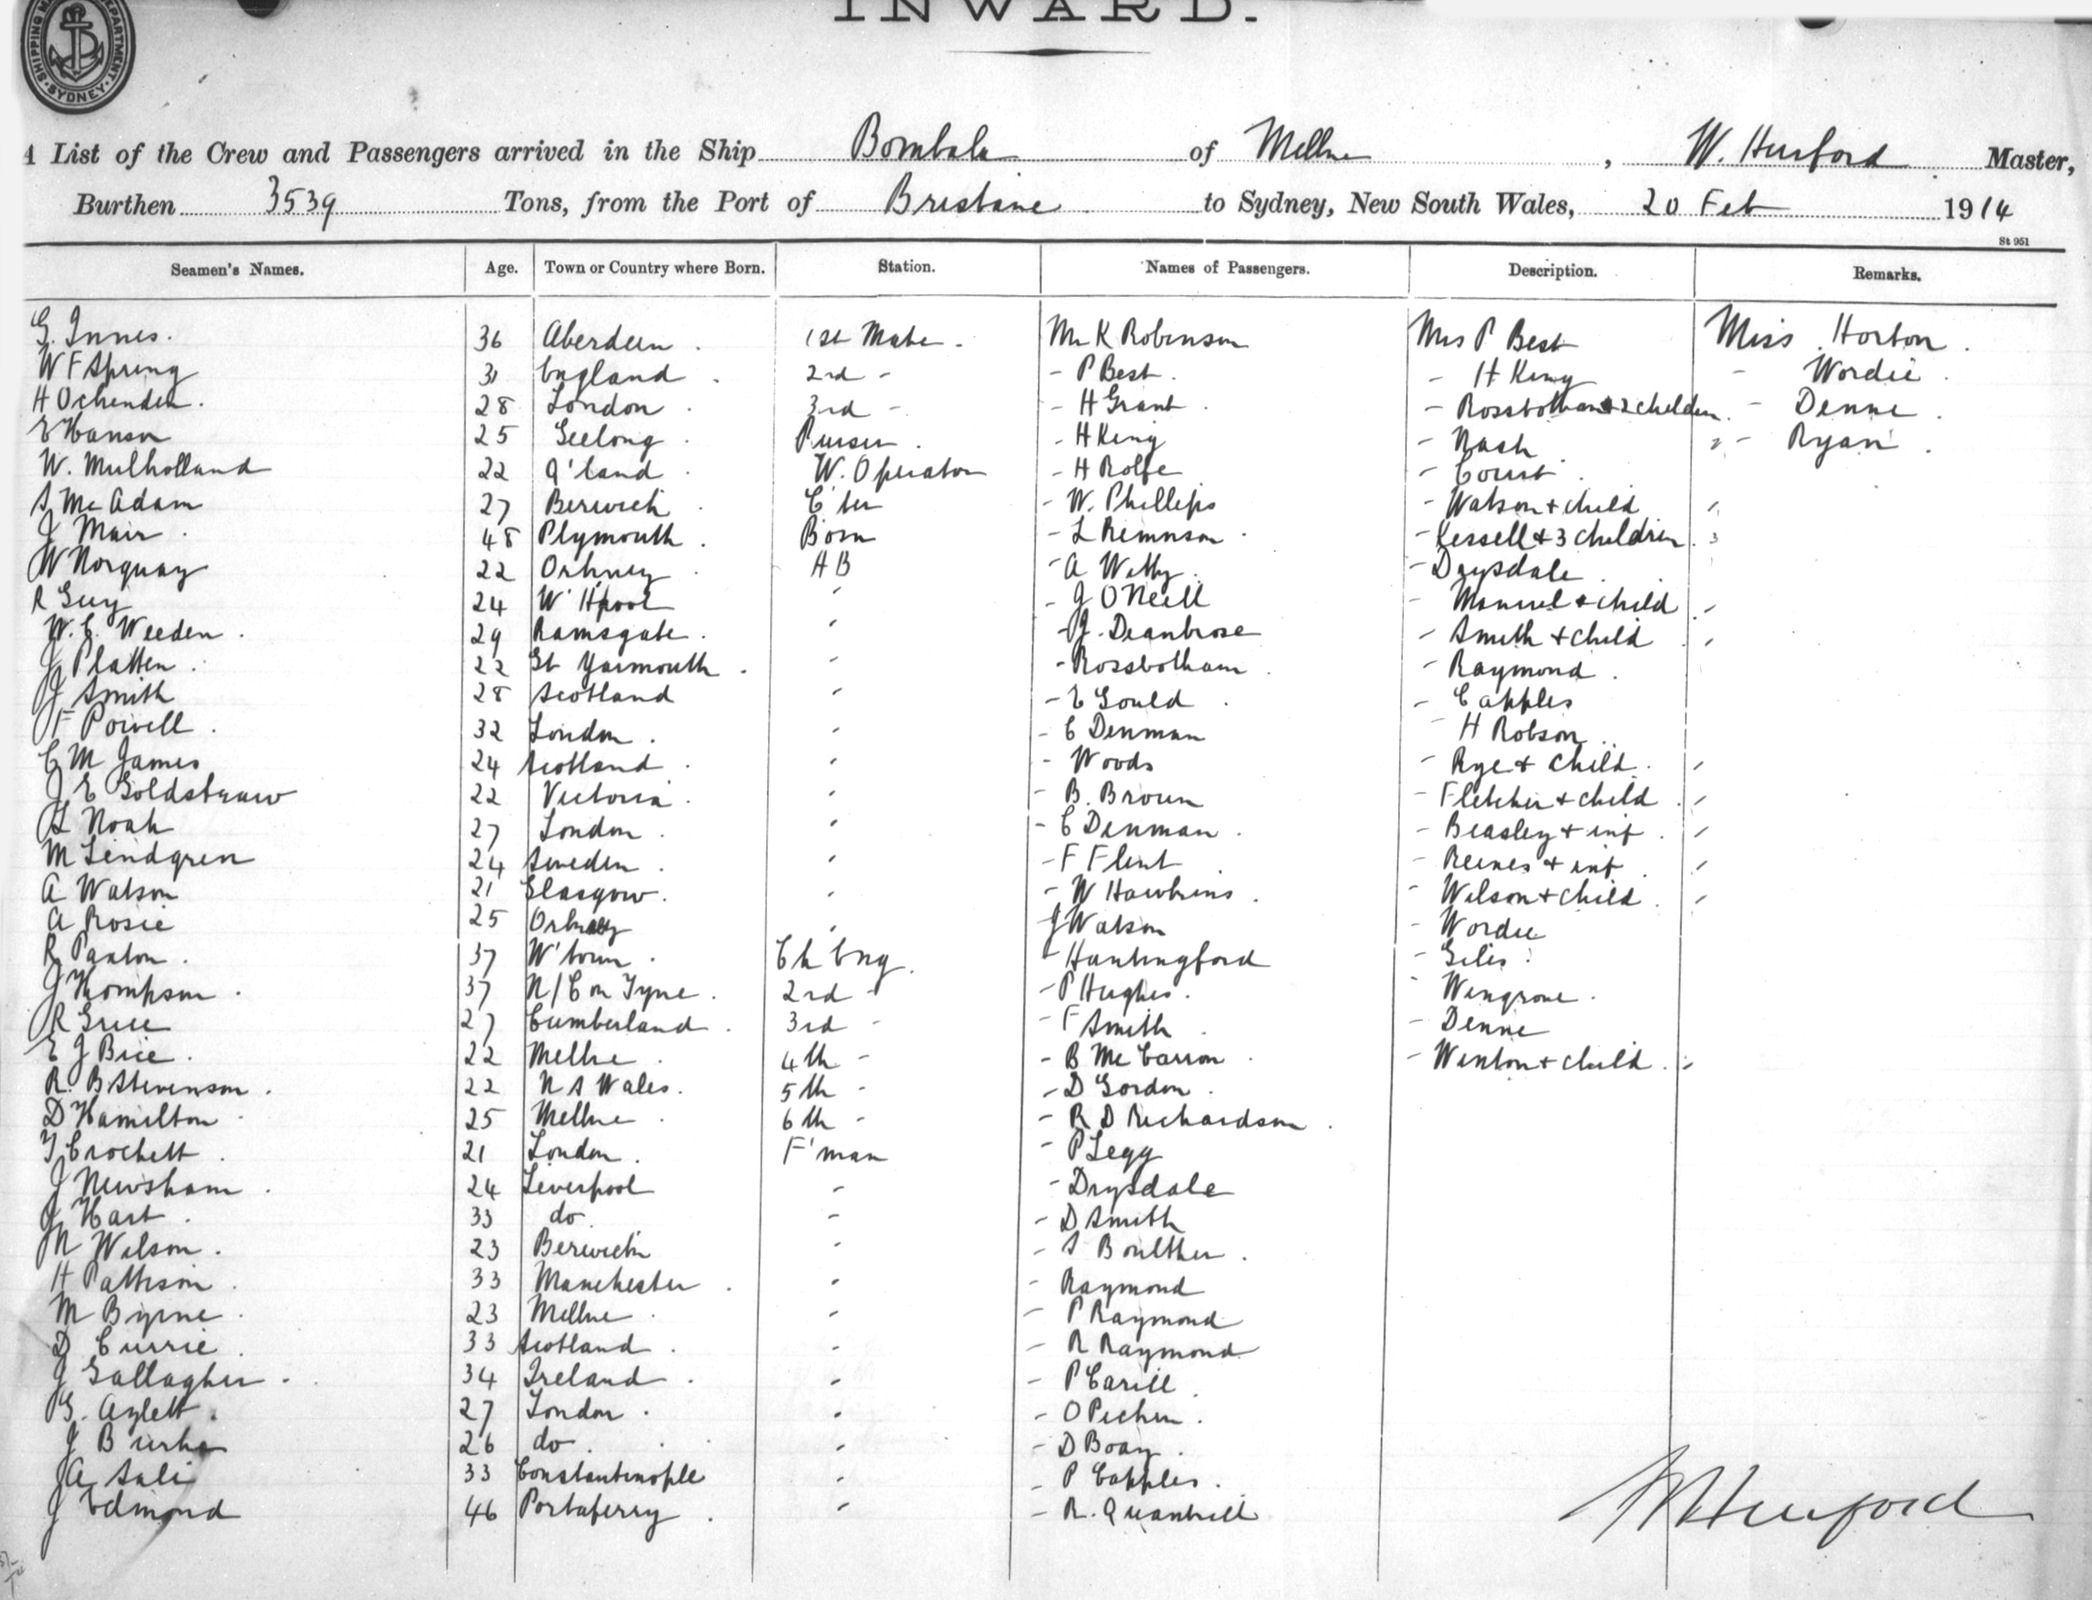 INWARD.
SHIPPING MA DEPARTMENT SYDNEY
A List of the Crew and Passengers arrived in the Ship Bombala of Mellne, W. Hurford Master,
Burthen 3539 Tons, from the Port of Brisbane to Sydney, New South Wales, 20 Feb 1914
St 951
Seamen's Names. Age. Town or Country where Born. Station. Names of Passengers. Description. Remarks.
G. Innes. 36 Aberdeen. 1st Mate. Mr K Robinson Mrs P Best Miss Horton.
W F Spring 31 England. 2nd - - P Best. - H King - Wordie.
H Ochenden. 28 London. 3rd - - H Grant. - Rossbotham & 2 children. - Denne.
E Hanson 25 Geelong. Purser. - H King - Nash " - Ryan.
W. Mulholland 22 Q'land. W. Operator - H Rolfe - Court.
S McAdam 27 Berwick. C'ter - W. Phillips - Watson + child
J Muir. 48 Plymouth. Bosn - L Remnson. - Kessell + 3 children. 3
W Norquay 22 Orkney. AB - A Witty. - Drysdale.
R Guy 24 W'Hpool " - J O'Neill - Manuel & child
W. C. Weeden. 29 Ramsgate. " - J. Deanbrose - Smith + child
J Platten. 22 Gt Yarmouth. " - Rossbotham. - Raymond.
J Smith 28 Scotland " - E Gould. - C apples
F Powell. 32 London. " - C Denman - H Robson.
C M James 24 Scotland. " - Woods - Rye + child.
J E Goldstraw 22 Victoria. " - B. Brown - Fletcher + child.
L Noah 27 London. " - C Denman. - Beasley + inf.
M Lindgren 24 Sweden. " - F Flint - Reeves + inf.
A Watson 21 Glasgow. " - W Hawkins. - Wilson + child.
A Rosie 25 Orkney " J Watson - Wordie
R Paxton. 37 W'town. Ch Eng. - Huntingford - Giles.
J Thompson. 37 N/C on Tyne. 2nd - - P Hughes. - Wingrove.
R Grice 27 Cumberland. 3rd - - F Smith. - Denne
E J Bice. 22 Mellne. 4th - - B McCarron. - Winton + child.
R. B Stevenson. 22 N S Wales. 5th - - D Gordon.
D Hamilton. 25 Mellne. 6th - - R D Richardson.
T Crochett. 21 London. F'man - P Legg
J Newsham. 24 Liverpool - - Drysdale
J Hart. 33 do. - - D Smith
N Wilson. 23 Berwick - - S Boulther.
H Pattison. 33 Manchester. - - Raymond
M Byrne. 23 Mellne. - - P Raymond
D Currie. 33 Scotland. - - R Raymond
J Gallagher. 34 Ireland. - - P Carill.
G. Aylett. 27 London. - - O Pichen.
J Burke 26 do. - - D Boay.
A Sali 33 Constantinople - - P Capples.
J Edmond 46 Portaferry. - - R. Quantrill
W Hurford